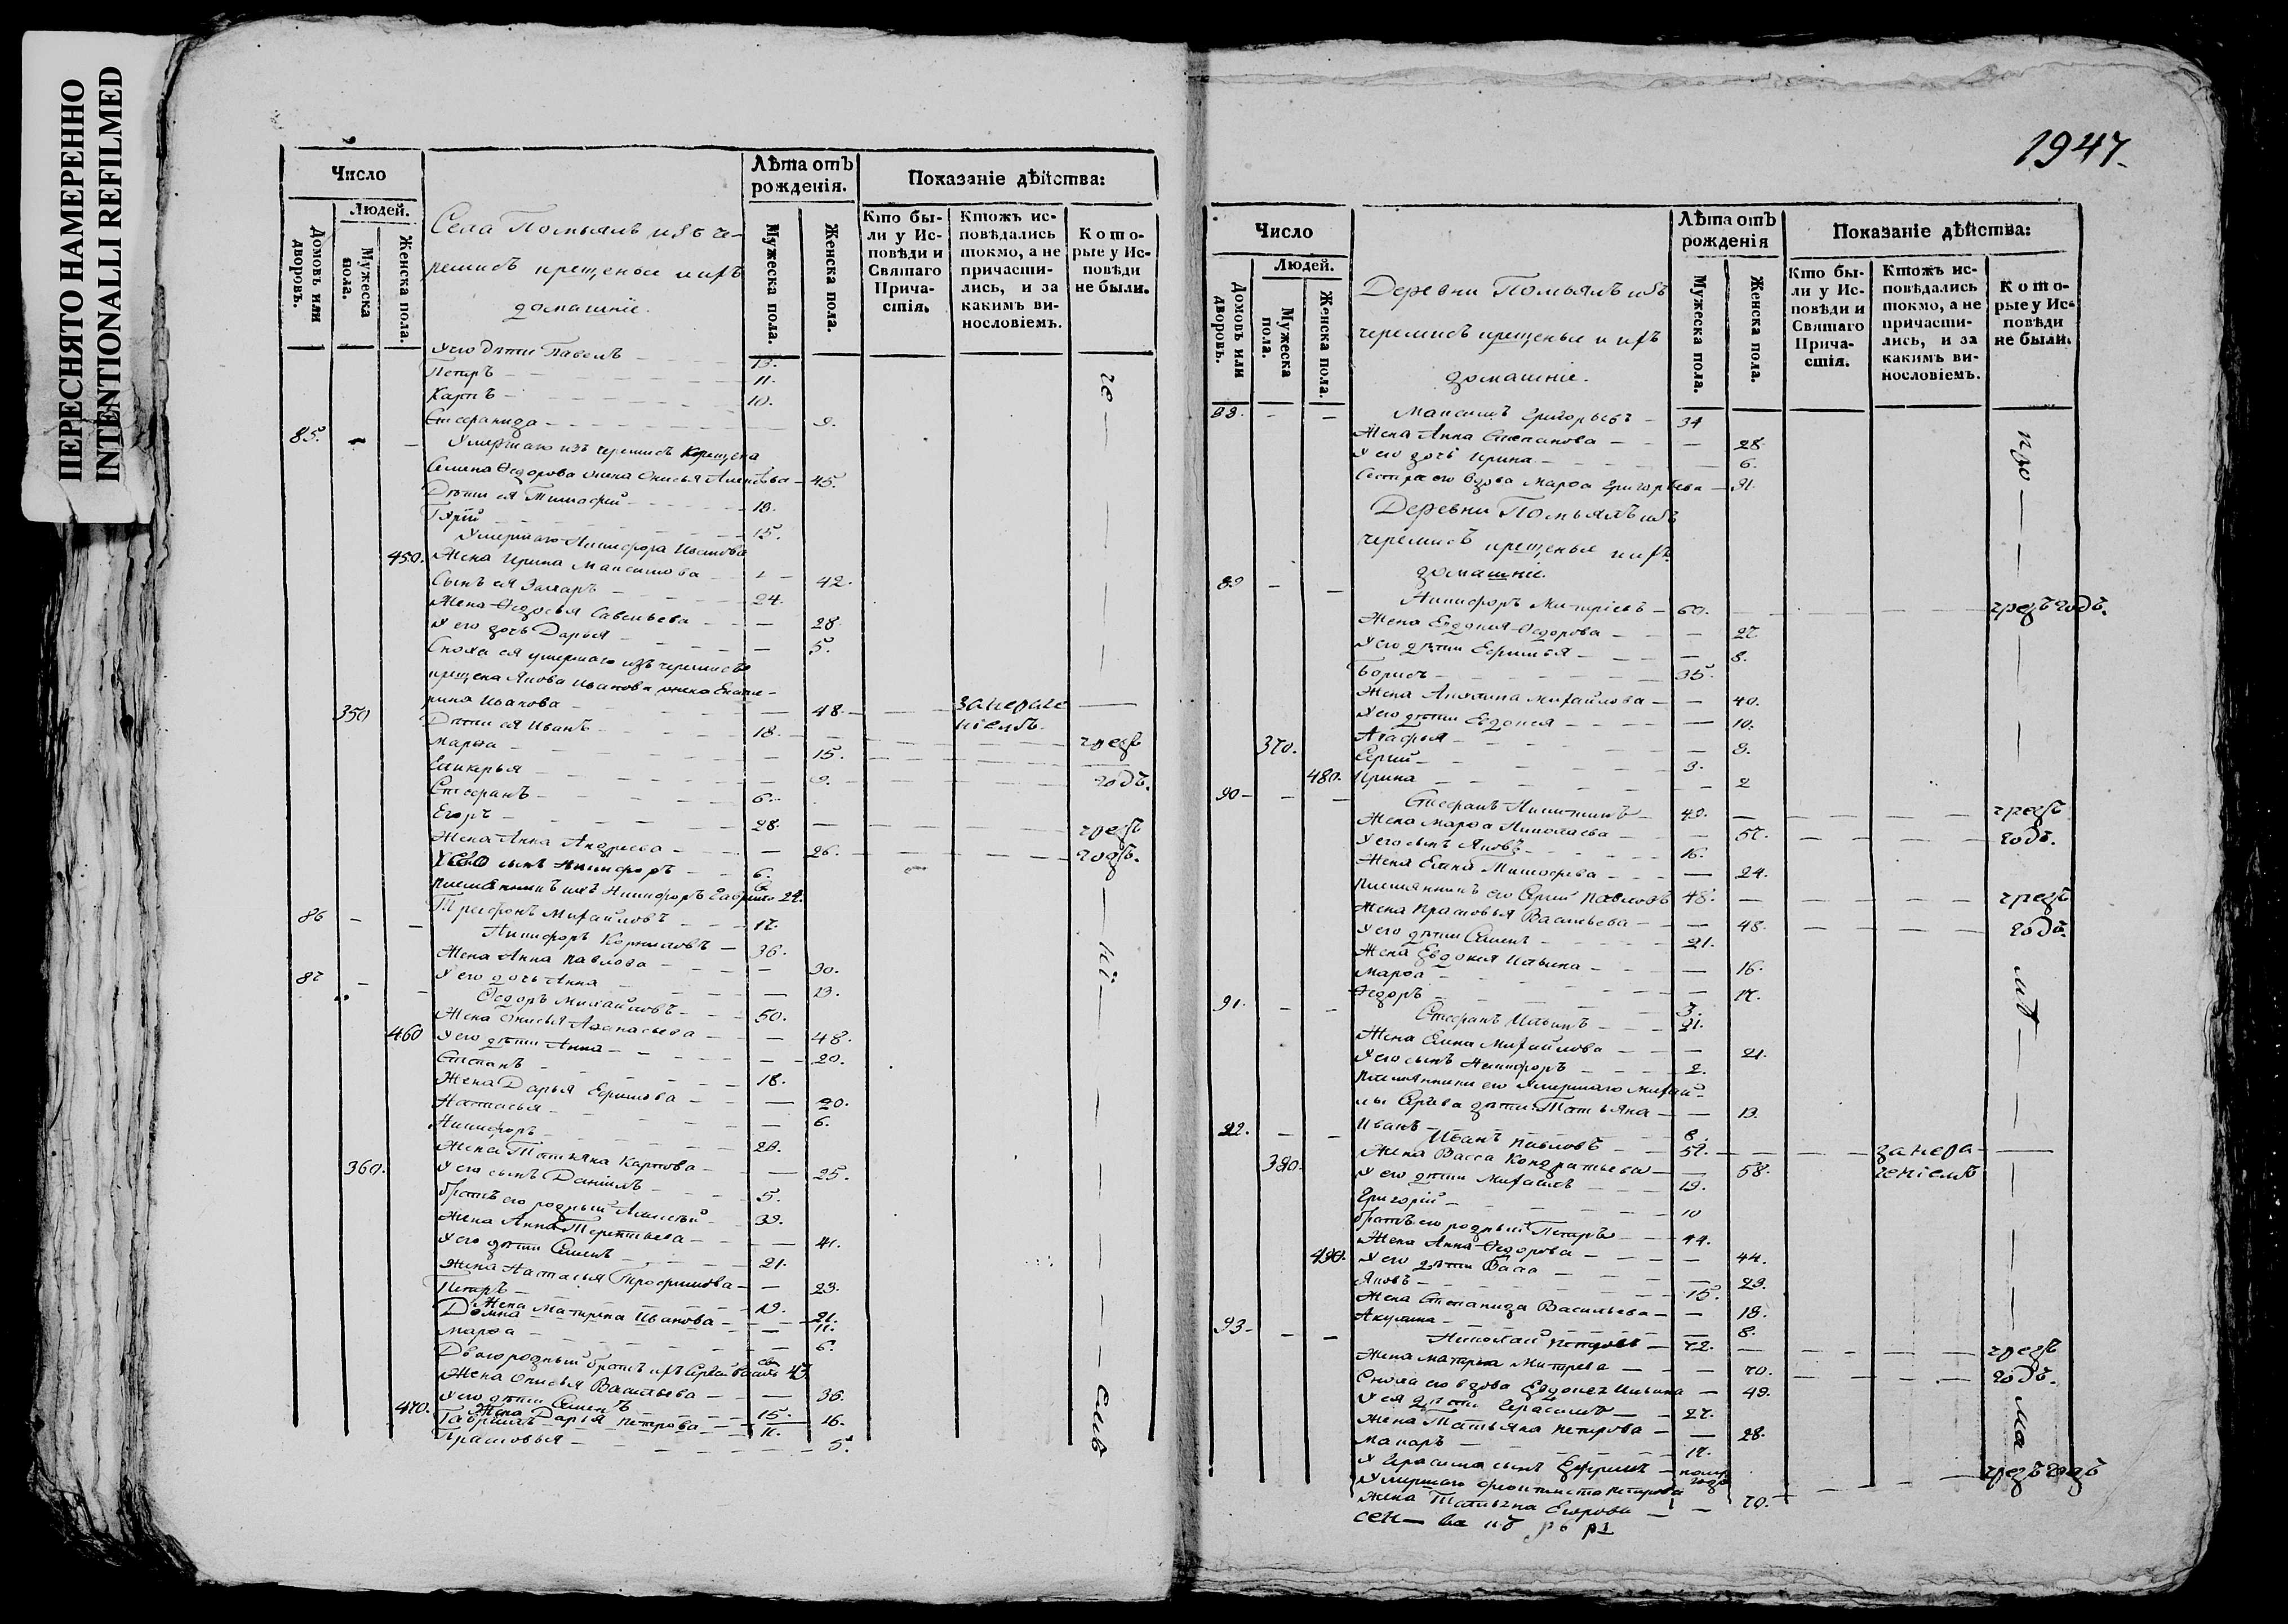 ПЕРЕСНЯТО НАМЕРЕННО
INTENTIONALLI REFILMED
Число
Людей.
Домовъ или дворовъ.
Мужеска пола.
Женска пола.
Села Помьялъ изъ че-
ремисъ крещеные и ихъ
домашніе.
Лѣта отъ рожденія.
Мужеска пола.
Женска пола.
Показаніе дѣйства:
Кто бы-
ли у Ис-
повѣди и
Святаго
Прича-
стія.
Ктожъ ис-
повѣдались
токмо, а не
причасти-
лись, и за
какимъ ви-
нословіемъ.
Кото-
рые у Ис-
повѣди
не были.
У его дѣти Павелъ 13.
Петръ 11.
Карпъ 10.
Стефанида 9.
85. Умершаго изъ черемисъ крещена
Семена Федорова жена Анисья Алексѣева 45.
Дѣти ея Тимофей 18.
Гурій 15.
Умершаго Никифора Иванова
450. Жена Ирина Максимова 42.
Сынъ ея Захаръ 24.
Жена Федосья Савельева 28.
У его дочь Дарья 5.
Сноха ея умершаго изъ черемисъ
крещена Якова Иванова жена Екате-
рина Иванова 48.
350 Дѣти ея Иванъ 18.
Марфа 15.
Гликерья 9.
Стефанъ 6.
Егоръ 28.
чрезъ
годъ.
Жена Анна Андреева 26.
чрезъ
годъ.
сынъ Никифоръ 6.
Племянникъ ихъ Никифоръ Гаврило 24.
86 Трифонъ Михайловъ 17.
Никифоръ Корниловъ 36.
Жена Анна Павлова 30.
87 У его дочь Анна 13.
Федоръ Михайловъ 50.
Жена Анисья Афанасьева 48.
460 У его дѣти Анна 20.
Степанъ 18.
Жена Дарья Ефимова 20.
Наталья 6.
Никифоръ 28.
Жена Татьяна Карпова 25.
360. У его сынъ Даніилъ 5.
братъ его родный Алексѣй 39.
Жена Анна Терентьева 41.
У его дѣти Семенъ 21.
Жена Настасья Трофимова 23.
Петръ 19.
Жена Матрена Иванова 21.
Домна 11.
Марфа 6.
Двоюродный братъ ихъ Сергей Василь 43
Жена Анисья Васильева 36.
У его дѣти Семенъ 15.
470. Жена Дарья Петрова 16.
Гаврилъ 11.
Прасковья 5.
1947.
Число
Людей.
Домовъ или дворовъ.
Мужеска пола.
Женска пола.
Деревни Помьялъ изъ
черемисъ крещеные и ихъ
домашніе.
Лѣта отъ рожденія
Мужеска пола.
Женска пола.
Показаніе дѣйства:
Кто бы-
ли у Ис-
повѣди и
Святаго
Прича-
стія.
Ктожъ ис-
повѣдались
токмо, а не
причасти-
лись, и за
какимъ ви-
нословіемъ.
Кото-
рые у Ис-
повѣди
не были.
Максимъ Григорьевъ 34
Жена Анна Степанова 28
У его дочь Ирина 6.
Сестра его вдова Марфа Григорьева
Деревни Помьялъ изъ
черемисъ крещеные и ихъ
домашніе.
89 Никифоръ Митріевъ 60. чрезъ годъ.
Жена Евдокия Федорова 27.
У его дѣти Ефимья 8.
Борисъ 35.
Жена Акулина Михайлова 40.
У его дѣти Евдокея 10.
370. Агафья 8.
Сергій 3.
480. Ирина 2
90 Стефанъ Никитинъ 49. чрезъ
Жена Марфа Николаева 57. годъ.
У его сынъ Яковъ 16.
Жена Елена Тимофеева 24.
Племянникъ его Сергій Павловъ 48. чрезъ
Жена Прасковья Васильева 48. годъ.
У его дѣти Семенъ 21.
Жена Евдокия Ильина 16.
Марфа 17.
91. Федоръ 3.
Стефанъ Ильинъ 21.
Жена Елена Михайлова 21.
У его сынъ Никифоръ 2.
Племянники его умершаго Михай-
лы Сергеева дѣти Татьяна 13.
Иванъ 8.
92. Иванъ Павловъ 57.
380. Жена Васса Кондратьева 58.
У его дѣти Михайлъ 19.
Григорій 10
братъ его родный Петръ 44.
Жена Анна Федорова 44.
490. У его дѣти Васса 23.
Яковъ 15.
Жена Степанида Васильева 18.
Акулина 8.
93 Николай Петровъ 72. чрезъ
Жена Матрена Митрева 70. годъ.
Сноха его вдова Евдокея Ильина 49.
У ея дѣти Герасимъ 27.
Жена Татьяна Петрова 28.
Макаръ 17.
У Герасима сынъ Ефремъ полу года
Умершаго Феоктиста Петрова
Жена Татьяна Егорова 70. чрезъ годъ